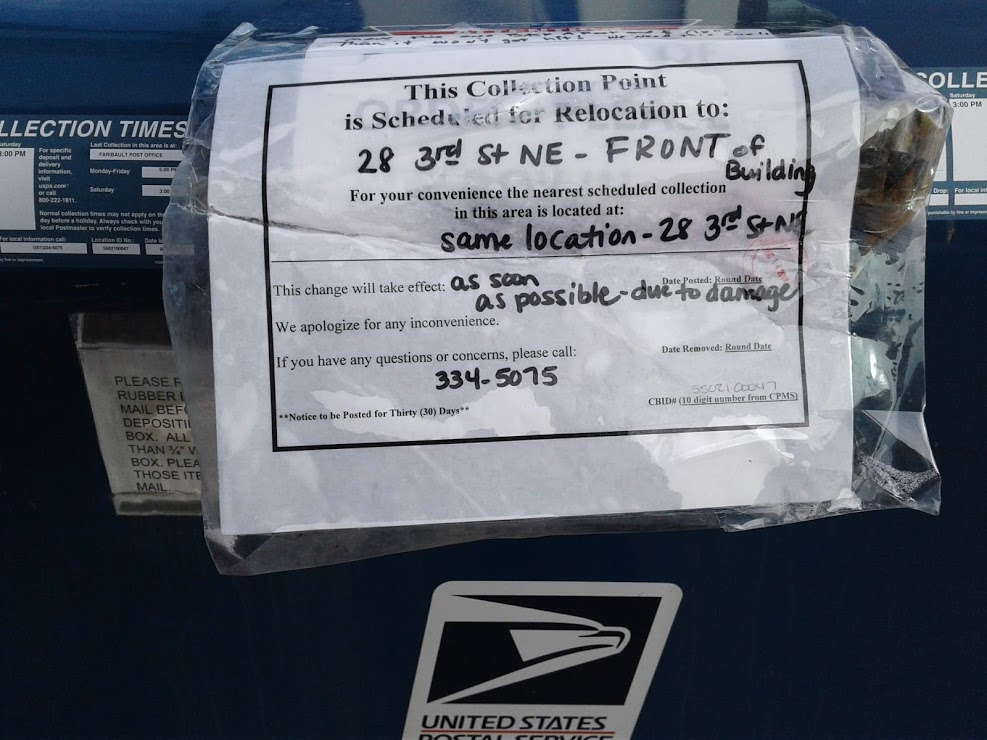 This Collection Point
is Scheduled for Relocation to:
28 3rd St NE - FRONT of
Building
For your convenience the nearest scheduled collection
in this area is located at:
same location - 28 3rd St NE
This change will take effect: as soon
as possible - due to damage
Date Posted: Round Date
We apologize for any inconvenience.
If you have any questions or concerns, please call:
334-5075
Date Removed: Round Date
CBID# (10 digit number from CPMS)
**Notice to be Posted for Thirty (30) Days**
LLECTION TIMES
For specific
deposit and
delivery
information,
visit
usps.com
or call
800-222-1811.
Last Collection in this area is at:
FARIBAULT POST OFFICE
Monday-Friday
Saturday
3:00
Normal collection times may not apply on the
day before a holiday. Always check with you
local Postmaster to verify collection times.
For local information call:
Location ID No.:
COLLE
Saturday
3:00 PM
PLEASE
RUBBER
MAIL BEF
DEPOSITI
BOX. ALL
THAN ¾"
BOX. PLEA
THOSE ITE
MAIL.
UNITED STATES
POSTAL SERVICE